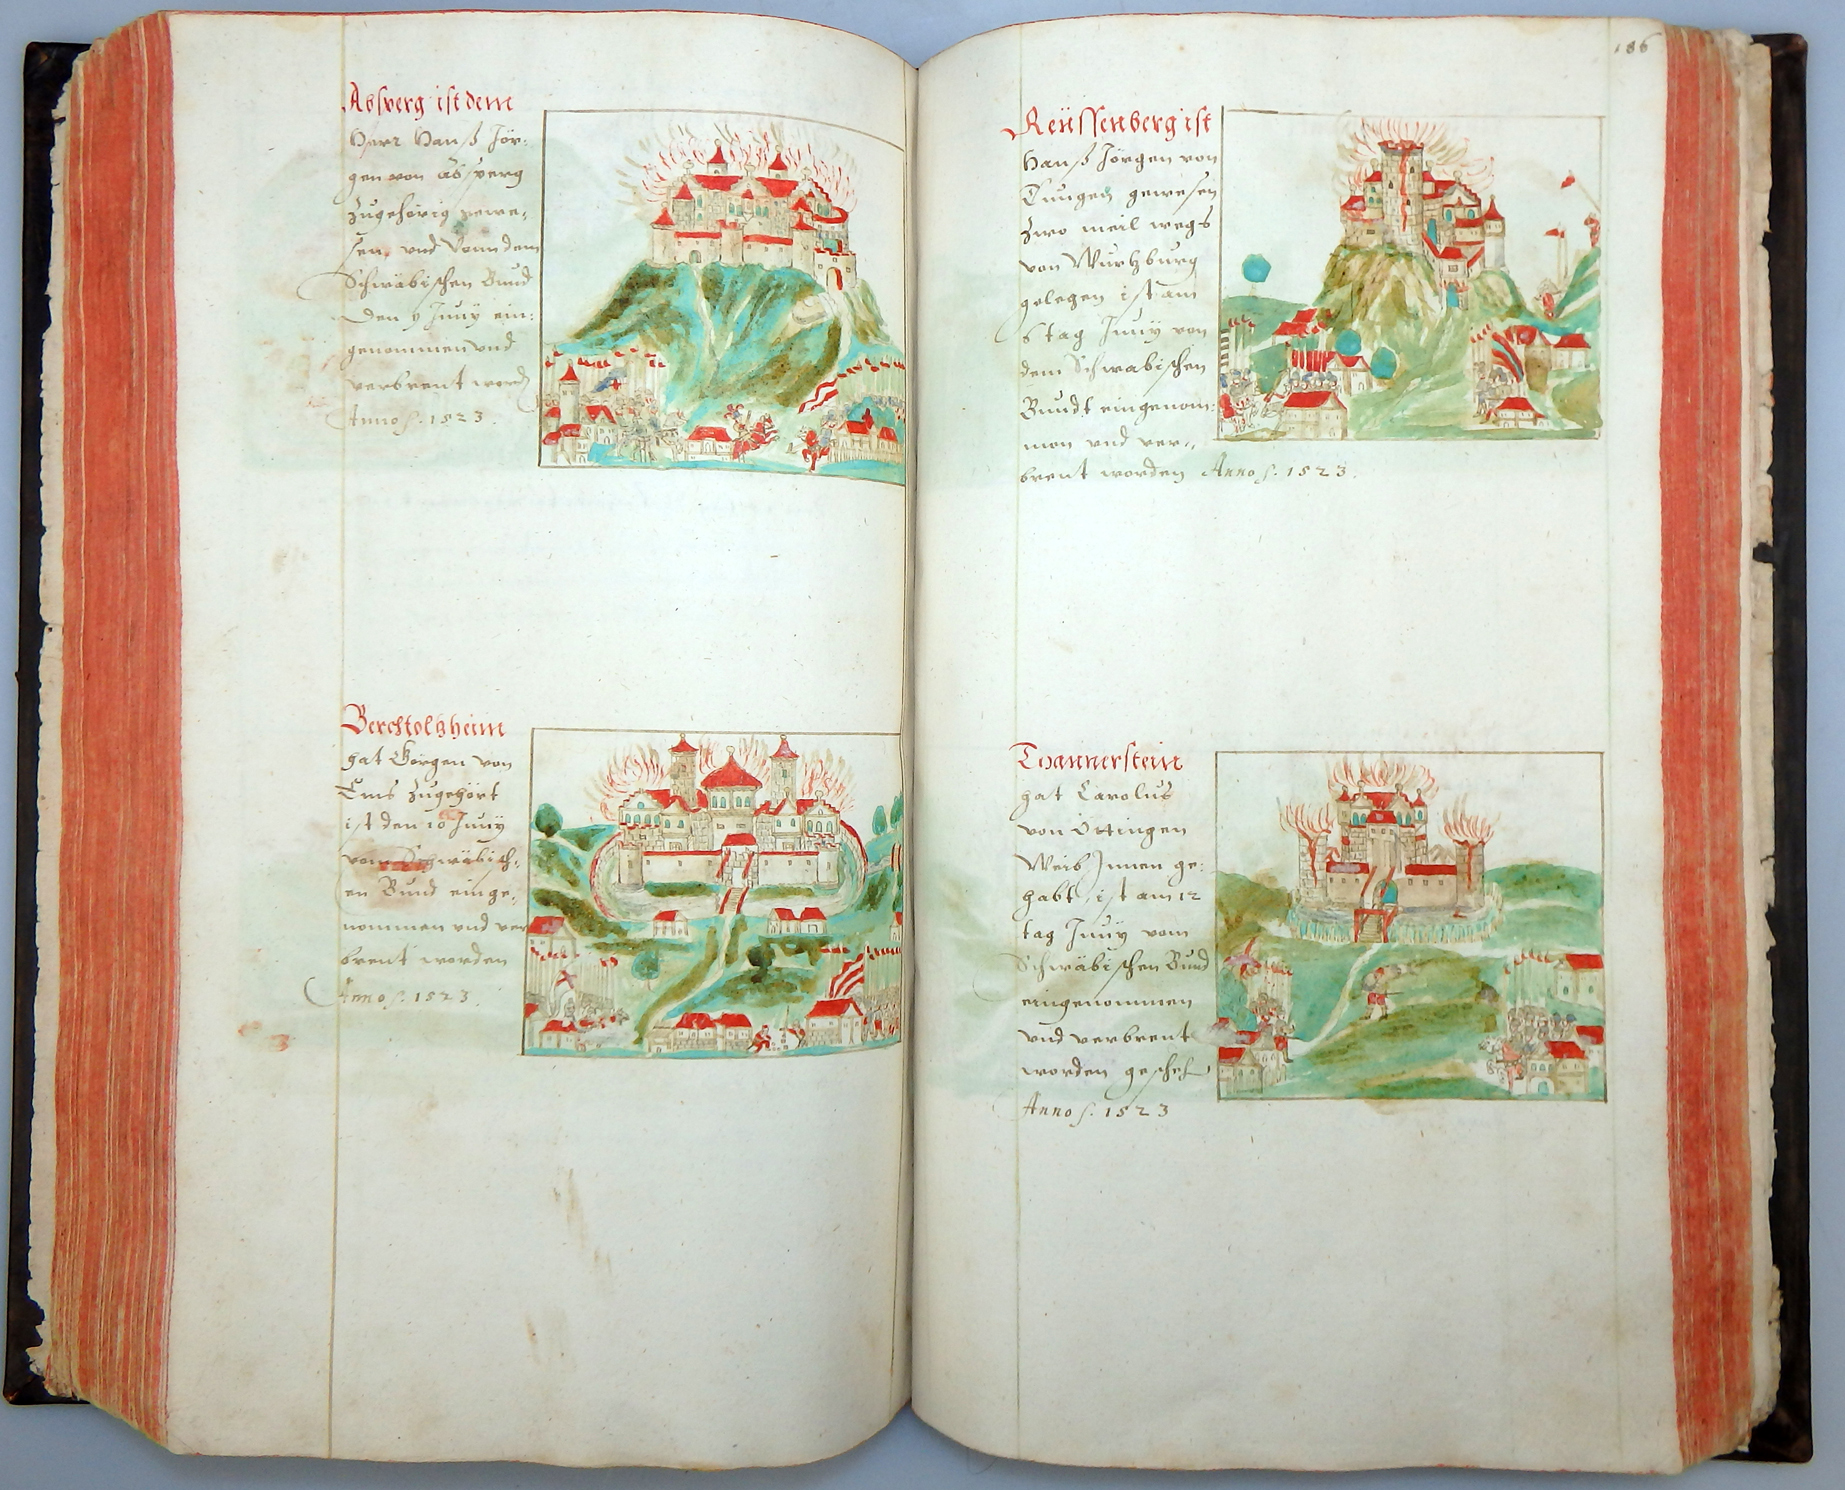 Absperg ist dem
Herr Hanß Jör-
gen von Absperg
zugehörig gewe-
sen, vnd vonn dem
Schwäbischen Bund
Den 9 Juny ein-
genommen vnd
verbrent word
Anno S. 1523.
Berchtolzheim
hat Görgen von
Ems zugehört
ist den 10 Juny
vom Schwäbisch-
en Bund einge-
nommen vnd ver
brent worden
Anno S. 1523.
186
Reüssenberg ist
Hanß Jörgen von
Tungen gewesen
zwo meil wegs
von Wurtzburg
gelegen ist am
6 tag Juny von
dem Schwabischen
Bundt eingenom-
men vnd ver-
brent worden Anno S. 1523.
Thannerstein
hat Carolus
von Öttingen
Weib Innen ge-
habt, ist am 12
tag Juny vom
Schwäbischen Bund
eingenommen
vnd verbrent
worden gescheh
Anno S. 1523